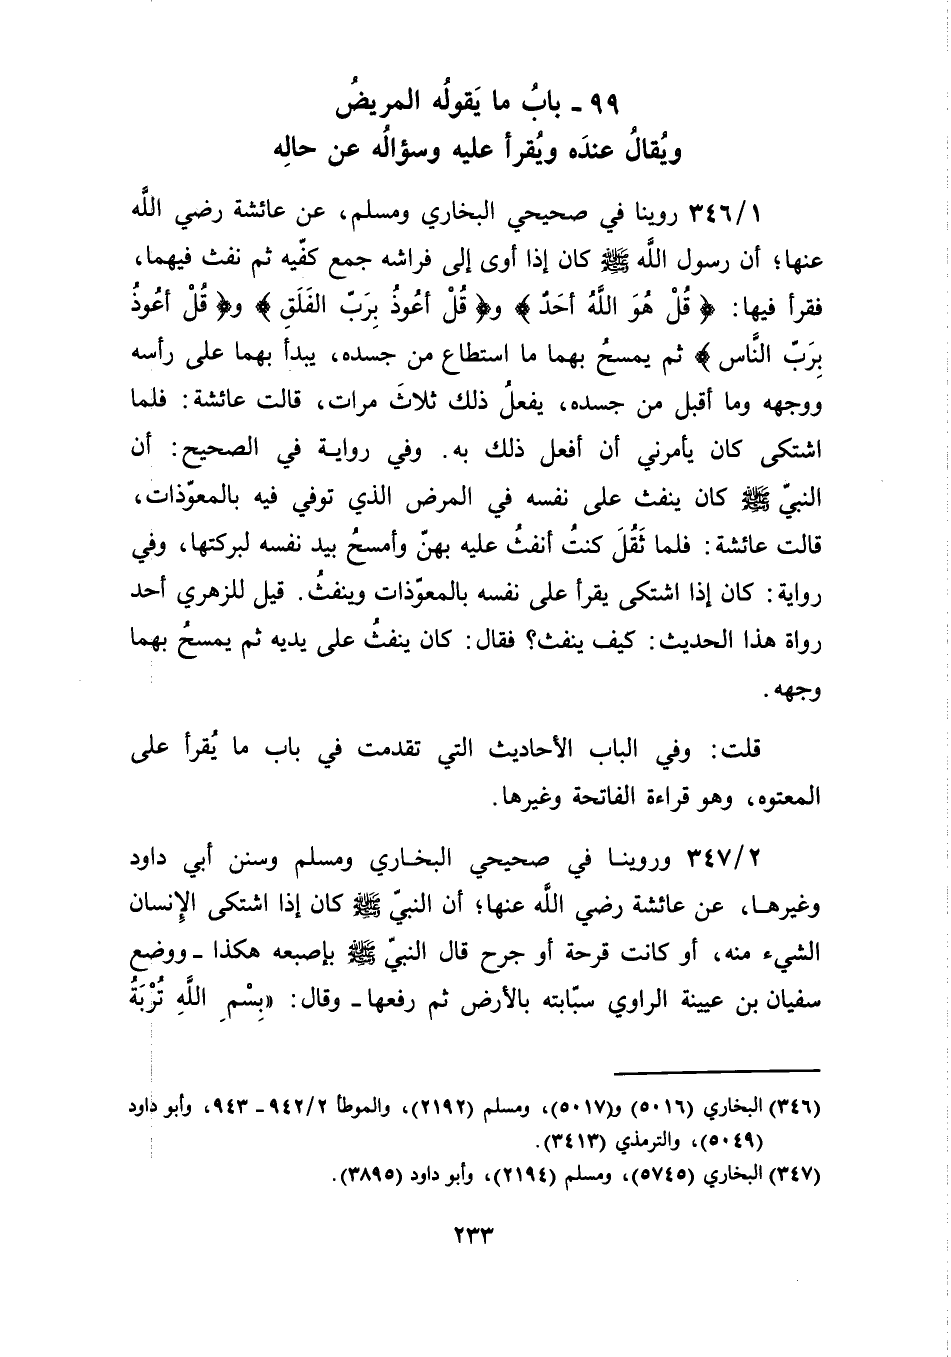 ٩٩ ـ بابُ ما يَقولُه المريضُ
ويُقالُ عندَه ويُقرأ عليه وسؤالُه عن حالِه
٣٤٦/١ روينا في صحيحي البخاري ومسلم، عن عائشة رضي اللَّه
عنها؛ أن رسول اللَّه ﷺ كان إذا أوى إلى فراشه جمع كفّيه ثم نفث فيهما،
فقرأ فيها: ﴿ قُلْ هُوَ اللَّهُ أحَدٌ ﴾ و﴿ قُلْ أعُوذُ بِرَبّ الفَلَقِ ﴾ و﴿ قُلْ أعُوذُ
بِرَبّ النَّاس ﴾ ثم يمسحُ بهما ما استطاع من جسده، يبدأ بهما على رأسه
ووجهه وما أقبل من جسده، يفعلُ ذلك ثلاثَ مرات، قالت عائشة: فلما
اشتكى كان يأمرني أن أفعل ذلك به. وفي رواية في الصحيح: أن
النبيّ ﷺ كان ينفث على نفسه في المرض الذي توفي فيه بالمعوّذات،
قالت عائشة: فلما ثَقُلَ كنتُ أنفثُ عليه بهنّ وأمسحُ بيد نفسه لبركتها، وفي
رواية: كان إذا اشتكى يقرأ على نفسه بالمعوّذات وينفثُ. قيل للزهري أحد
رواة هذا الحديث: كيف ينفث؟ فقال: كان ينفثُ على يديه ثم يمسحُ بهما
وجهه.
قلت: وفي الباب الأحاديث التي تقدمت في باب ما يُقرأ على
المعتوه، وهو قراءة الفاتحة وغيرها.
٣٤٧/٢ وروينا في صحيحي البخاري ومسلم وسنن أبي داود
وغيرها، عن عائشة رضي اللَّه عنها؛ أن النبيّ ﷺ كان إذا اشتكى الإِنسان
الشيء منه، أو كانت قرحة أو جرح قال النبيّ ﷺ بإصبعه هكذا ـ ووضع
سفيان بن عيينة الراوي سبّابته بالأرض ثم رفعها ـ وقال: «بِسْمِ اللَّهِ تُرْبَةُ
(٣٤٦) البخاري (٥٠١٦) و(٥٠١٧)، ومسلم (٢١٩٢)، والموطأ ٩٤٢/٢ ـ ٩٤٣، وأبو داود
(٥٠٤٩)، والترمذي (٣٤١٣).
(٣٤٧) البخاري (٥٧٤٥)، ومسلم (٢١٩٤)، وأبو داود (٣٨٩٥).
٢٣٣